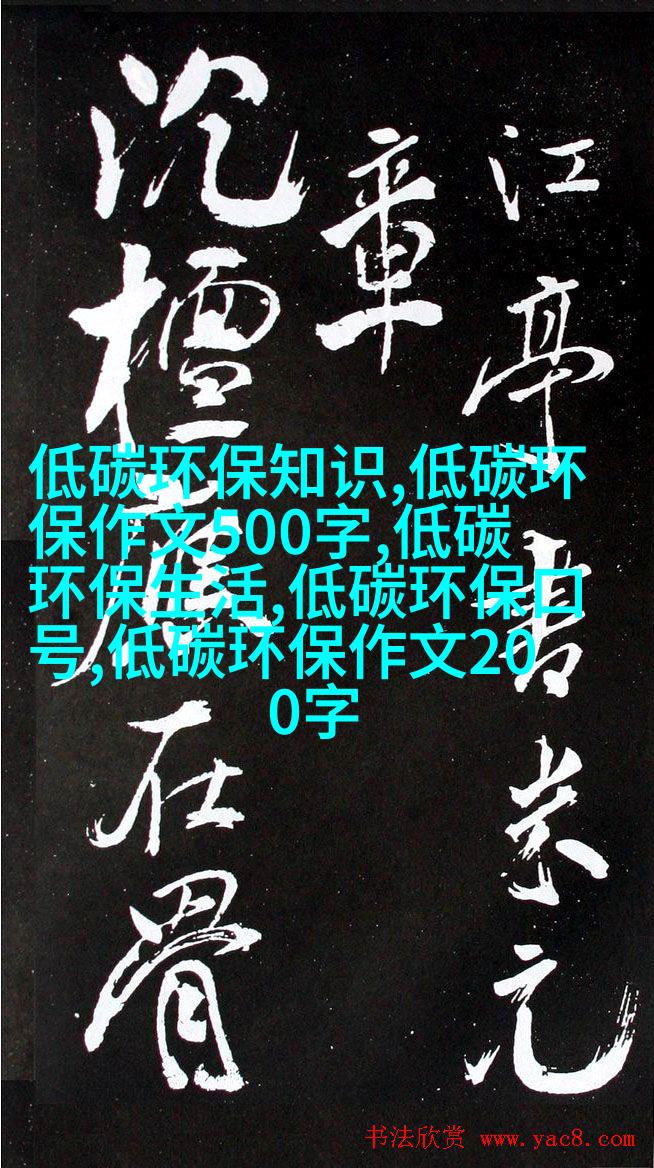 江亭書米元
章
沉檀在骨
低碳环保知识,低碳环
保作文500字,低碳
环保生活,低碳环保口
号,低碳环保作文20
0字
书法欣赏 www.yac8.com